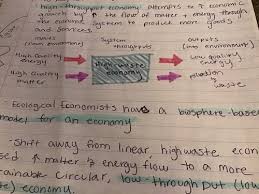 high-throughput economy: attempts to ↑ economic
growth by ↑ the flow of matter & energy through
the economic system to produce more goods
and services.
inputs System outputs
(from environment) throughputs (into environment)
High Quality energy → high-waste economy → low quality energy
High Quality matter → waste
Ecological Economists have a biosphere-based
model for an economy
shift away from linear, high waste econ
↑ matter & energy flow to a more
circular, low-throughput (low
waste) economy.